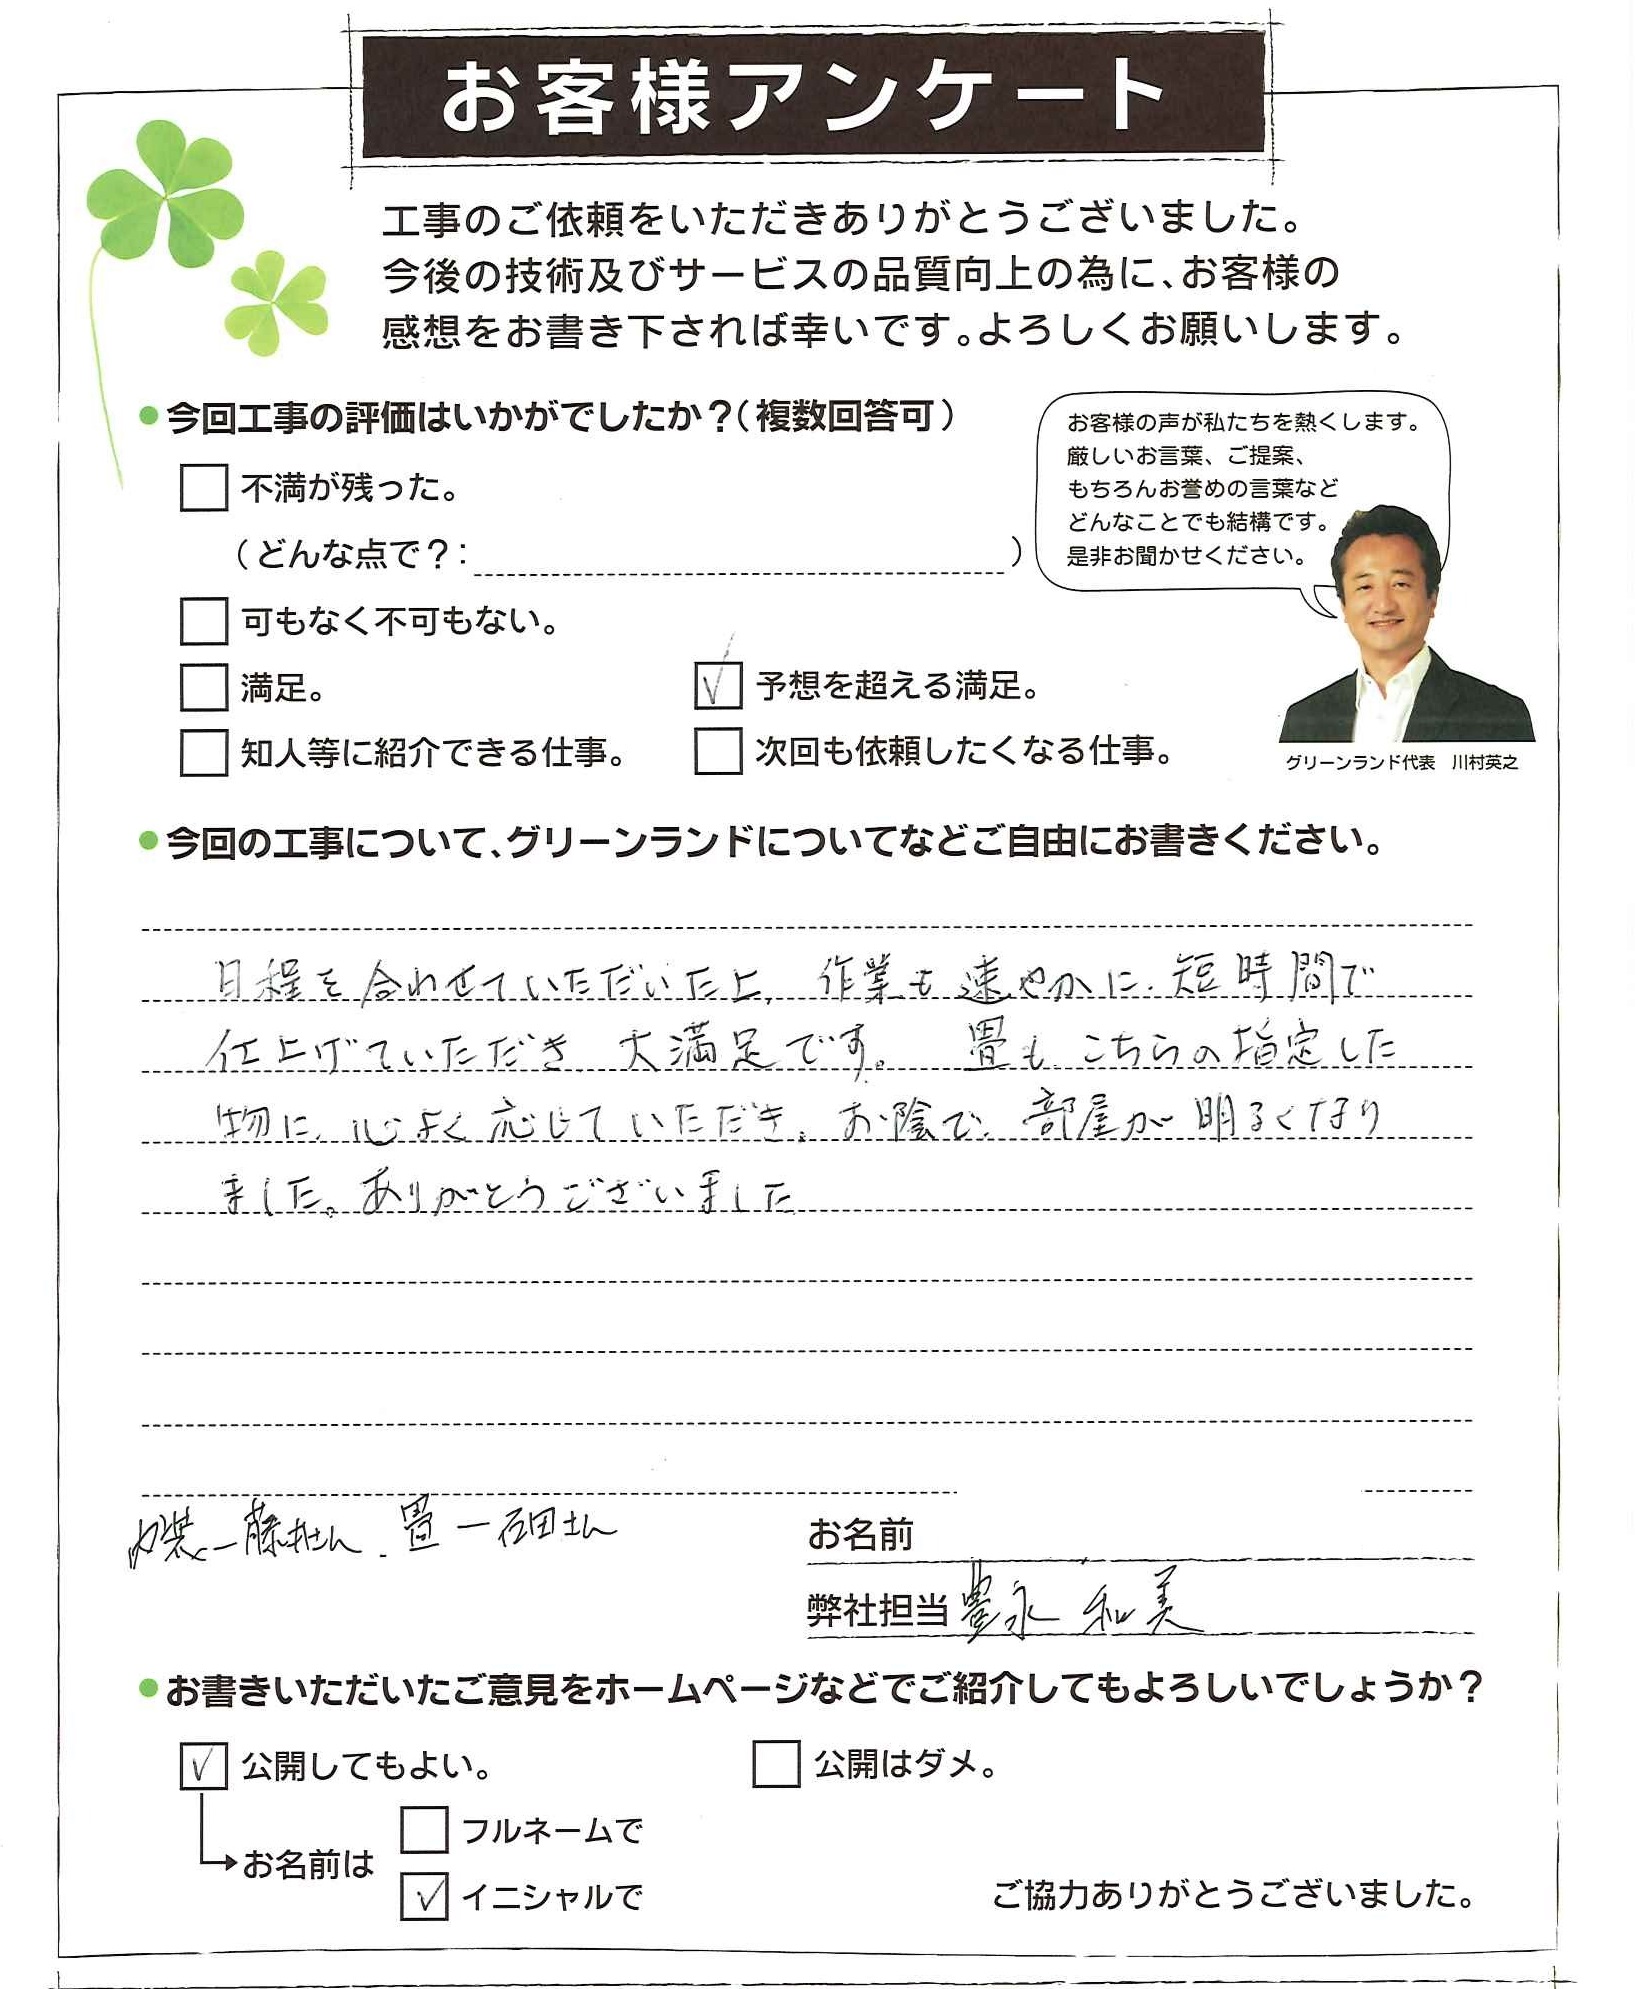 お客様アンケート
工事のご依頼をいただきありがとうございました。
今後の技術及びサービスの品質向上の為に、お客様の
感想をお書き下されば幸いです。よろしくお願いします。
●今回工事の評価はいかがでしたか？（複数回答可）
不満が残った。
（どんな点で？：　）
可もなく不可もない。
満足。
予想を超える満足。
知人等に紹介できる仕事。
次回も依頼したくなる仕事。
お客様の声が私たちを熱くします。
厳しいお言葉、ご提案、
もちろんお誉めの言葉など
どんなことでも結構です。
是非お聞かせください。
グリーンランド代表　川村英之
●今回の工事について、グリーンランドについてなどご自由にお書きください。
日程を合わせていただいた上、作業も速やかに、短時間で
仕上げていただき、大満足です。畳も、こちらの指定した
物に、心よく応じていただき、お陰で、部屋が明るくなり
ました。ありがとうございました
内装ー藤村さん、畳ー石田さん
お名前
弊社担当 豊永 和美
●お書きいただいたご意見をホームページなどでご紹介してもよろしいでしょうか？
公開してもよい。
公開はダメ。
お名前は
フルネームで
イニシャルで
ご協力ありがとうございました。